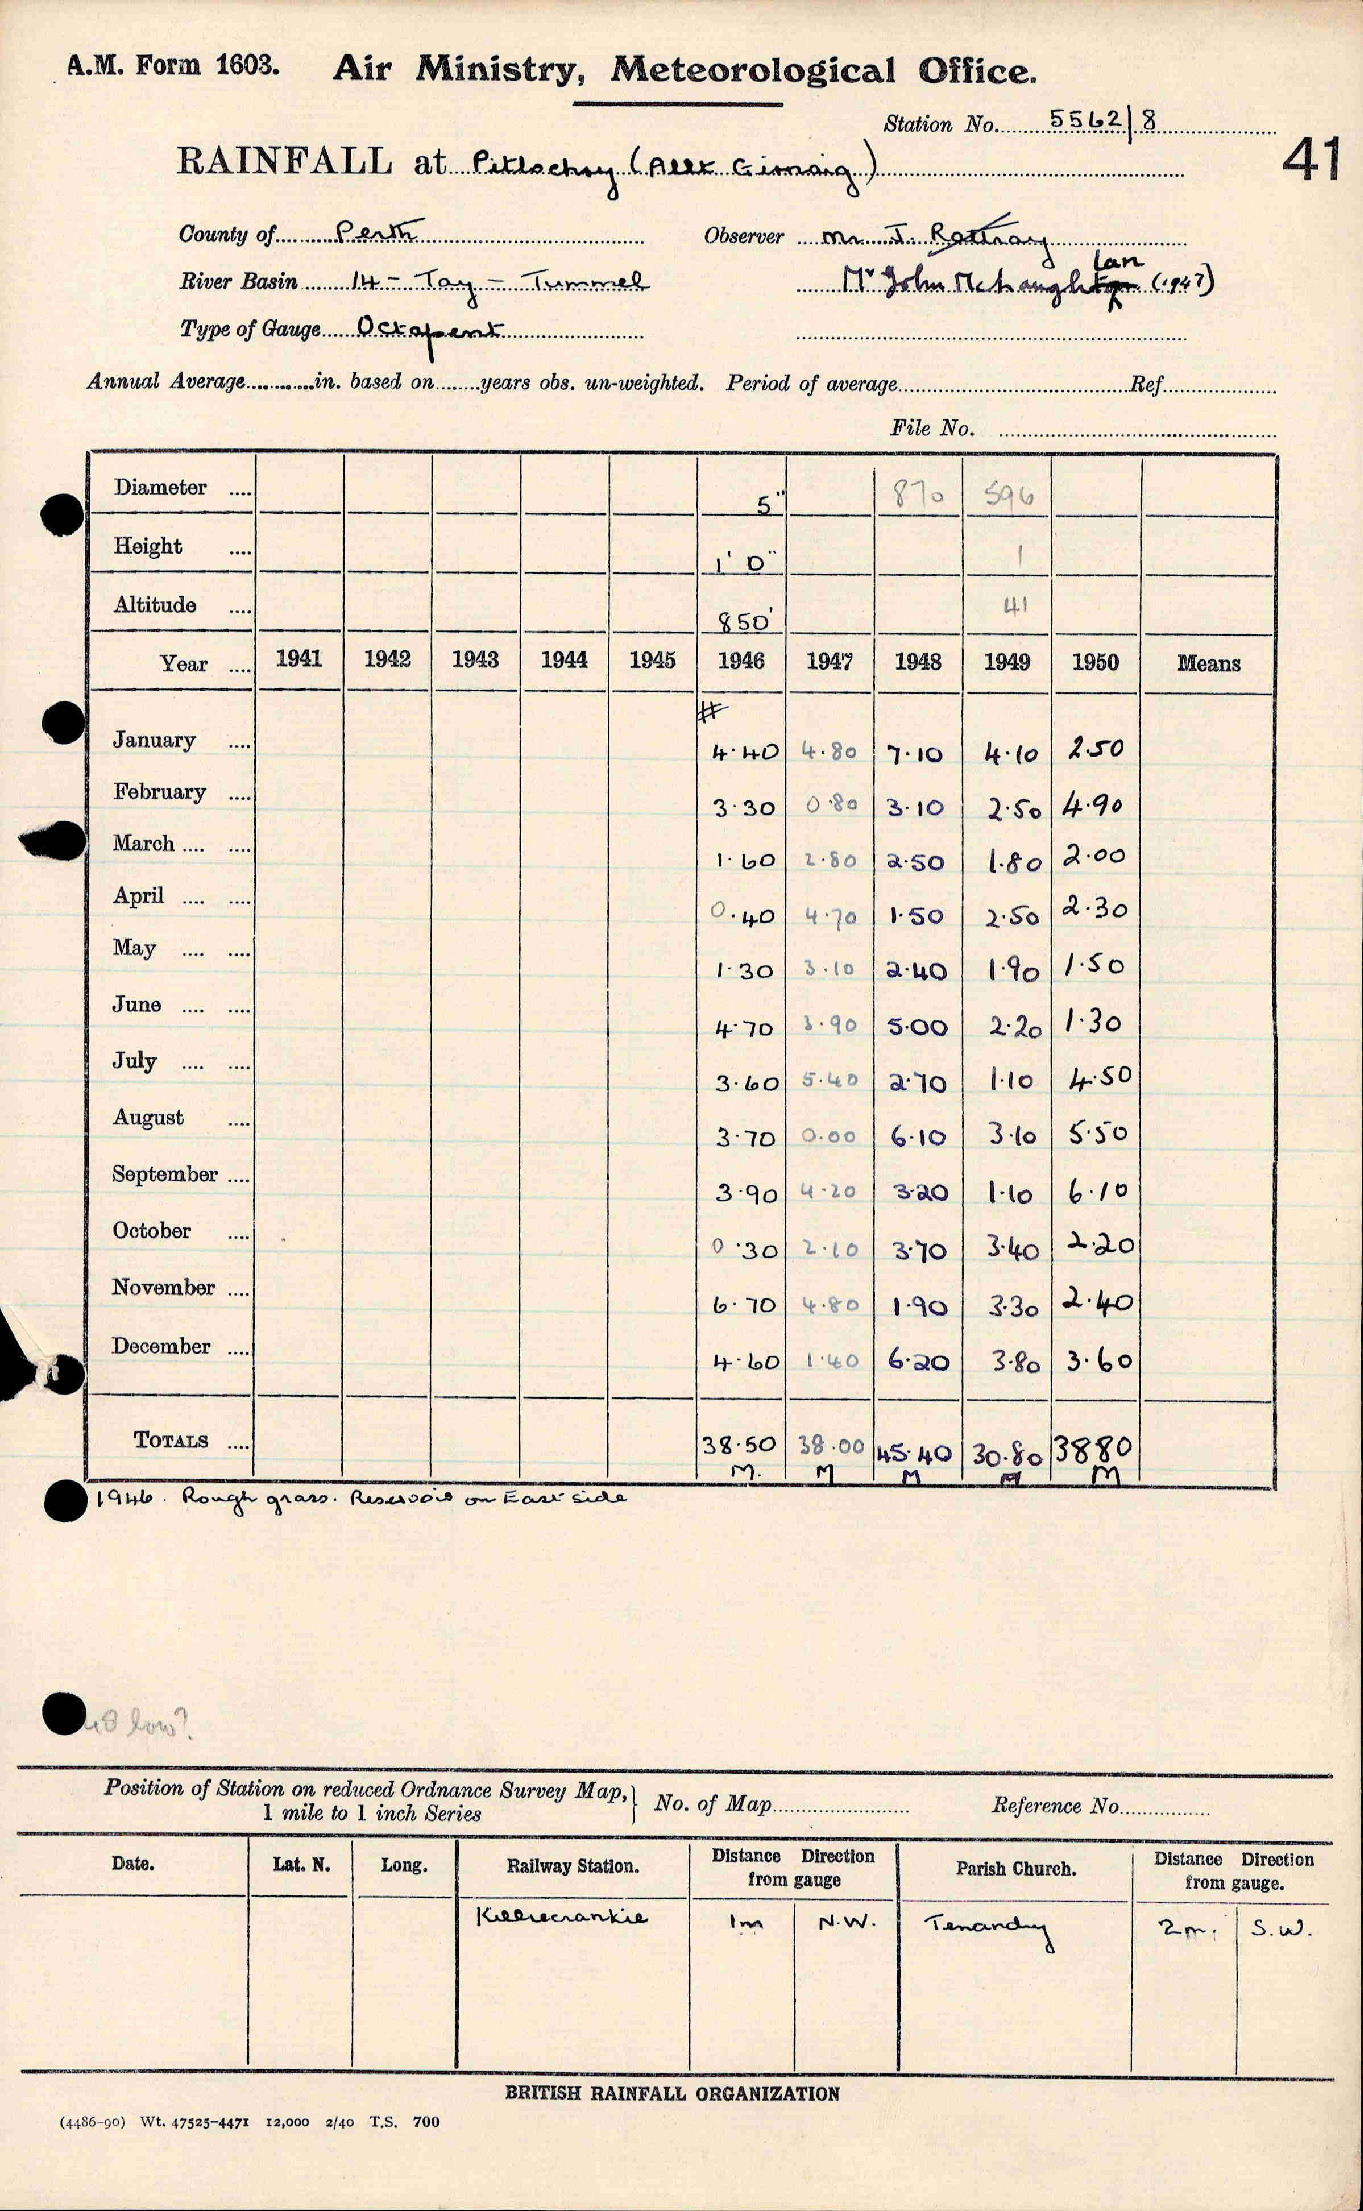 A.M. Form 1603. Air Ministry, Meteorological Office.
Station No. 5562/8
41
RAINFALL at Pitlochry (Allt Girnaig)
County of Perth Observer Mr. J. Rattray
River Basin 14 - Tay - Tummel Mr John McLaughlan (1947)
Type of Gauge Octapent
Annual Average in. based on years obs. un-weighted. Period of average Ref.
File No.
Diameter 5" 870 596
Height 1' 0" 1
Altitude 850' 41
Year 1941 1942 1943 1944 1945 1946 1947 1948 1949 1950 Means
#
January 4.40 4.80 7.10 4.10 2.50
February 3.30 0.80 3.10 2.50 4.90
March 1.60 2.80 2.50 1.80 2.00
April 0.40 4.70 1.50 2.50 2.30
May 1.30 3.10 2.40 1.90 1.50
June 4.70 3.90 5.00 2.20 1.30
July 3.60 5.40 2.70 1.10 4.50
August 3.70 0.00 6.10 3.10 5.50
September 3.90 4.20 3.20 1.10 6.10
October 0.30 2.10 3.70 3.40 2.20
November 6.70 4.80 1.90 3.30 2.40
December 4.60 1.40 6.20 3.80 3.60
TOTALS 38.50 38.00 45.40 30.80 38 80
M. M M M M
1946. Rough grass. Reservoir on East side
48 low?
Position of Station on reduced Ordnance Survey Map, 1 mile to 1 inch Series } No. of Map Reference No.
Date. Lat. N. Long. Railway Station. Distance Direction from gauge Parish Church. Distance Direction from gauge.
Killiecrankie 1m N.W. Tenandry 2m. S.W.
BRITISH RAINFALL ORGANIZATION
(4486-90) Wt. 47525-4471 12,000 2/40 T.S. 700